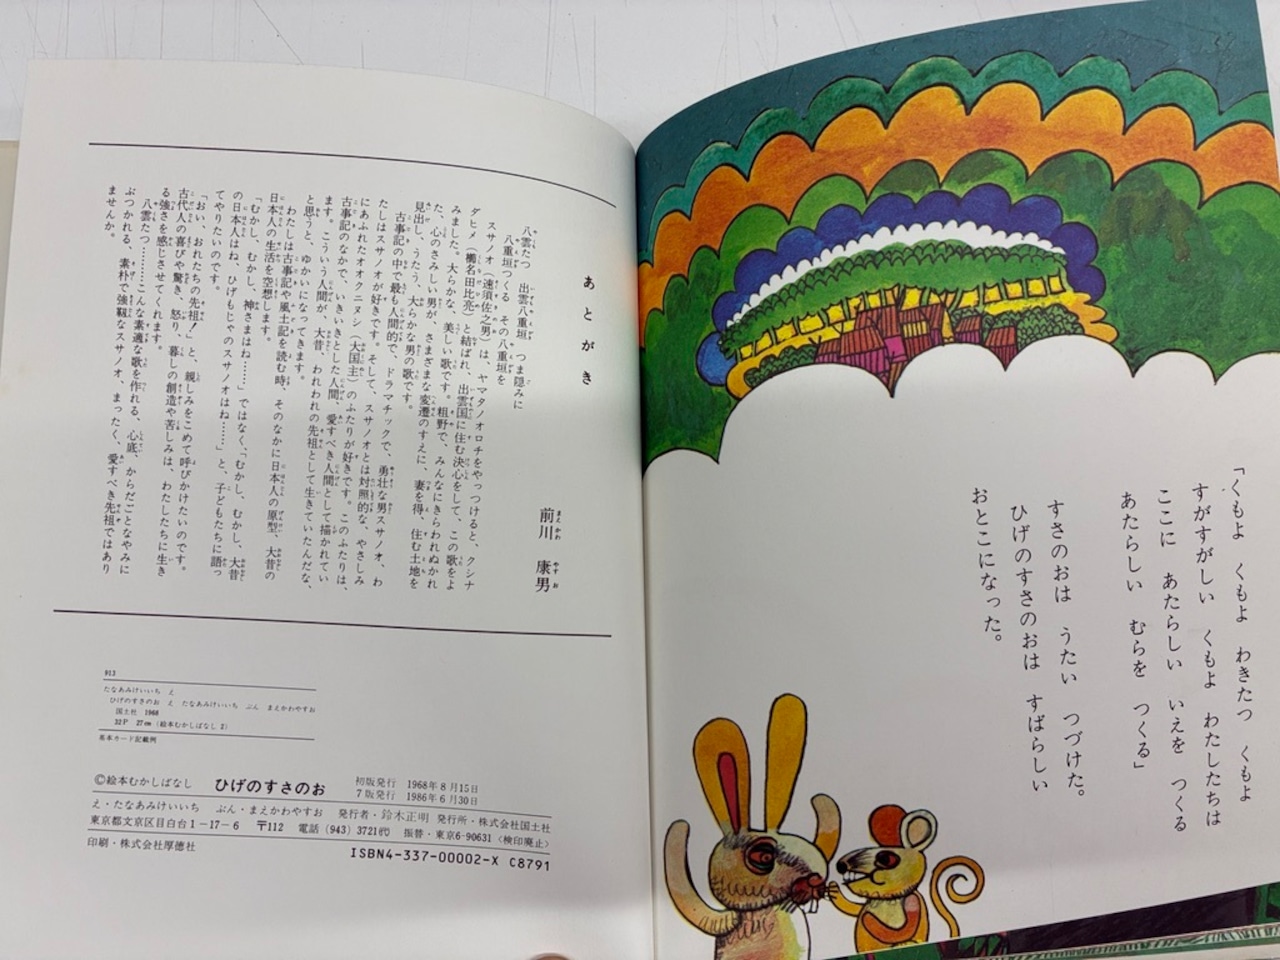 「くもよ　くもよ　わきたつ　くもよ
すがすがしい　くもよ　わたしたちは
ここに　あたらしい　いえを　つくる
あたらしい　むらを　つくる」
すさのおは　うたい　つづけた。
ひげのすさのおは　すばらしい
おとこになった。
あとがき
前川　康男
まえかわ　やすお
八雲たつ　出雲八重垣　つま隠みに
八重垣つくる　その八重垣を
スサノオ（速須佐之男）は、ヤマタノオロチをやっつけると、クシナ
ダヒメ（櫛名田比売）と結ばれ、出雲国に住む決心をして、この歌をよ
みました。大らかな、美しい歌です。粗野で、みんなにきらわれぬかれ
た、心のさみしい男が、さまざまな変遷のすえに、妻を得、住む土地を
見出し、うたう、大らかな男の歌です。
古事記の中で最も人間的で、ドラマチックで、勇壮な男スサノオ、わ
たしはスサノオが好きです。そして、スサノオとは対照的な、やさしみ
にあふれたオオクニヌシ（大国主）のふたりが好きです。このふたりは、
古事記のなかで、いきいきとした人間、愛すべき人間として描かれてい
ます。こういう人間が、大昔、われわれの先祖として生きていたんだな、
と思うと、ゆかいになってきます。
わたしは古事記や風土記を読む時、そのなかに日本人の原型、大昔の
日本人の生活を空想します。
「むかし、むかし、神さまはね……」ではなく、「むかし、むかし、大昔
の日本人はね、ひげもじゃのスサノオはね……」と、子どもたちに語っ
てやりたいのです。
「おい、おれたちの先祖！」と、親しみをこめて呼びかけたいのです。
古代人の喜びや驚き、怒り、暮しの創造や苦しみは、わたしたちに生き
る強さを感じさせてくれます。
八雲たつ…………こんな素適な歌を作れる、心底、からだごとなやみに
ぶつかれる、素朴で強靱なスサノオ、まったく、愛すべき先祖ではあり
ませんか。
913
たなあみけいいち　え
ひげのすさのお　え　たなあみけいいち　ぶん　まえかわやすお
国土社　1968
32P　27cm（絵本むかしばなし 2）
基本カード記載例
©絵本むかしばなし　ひげのすさのお　初版発行　1968年8月15日
7版発行　1986年6月30日
え・たなあみけいいち　ぶん・まえかわやすお　発行者・鈴木正明　発行所・株式会社国土社
東京都文京区目白台1-17-6　〒112　電話（943）3721㈹　振替・東京6-90631〈検印廃止〉
印刷・株式会社厚徳社　ISBN4-337-00002-X C8791